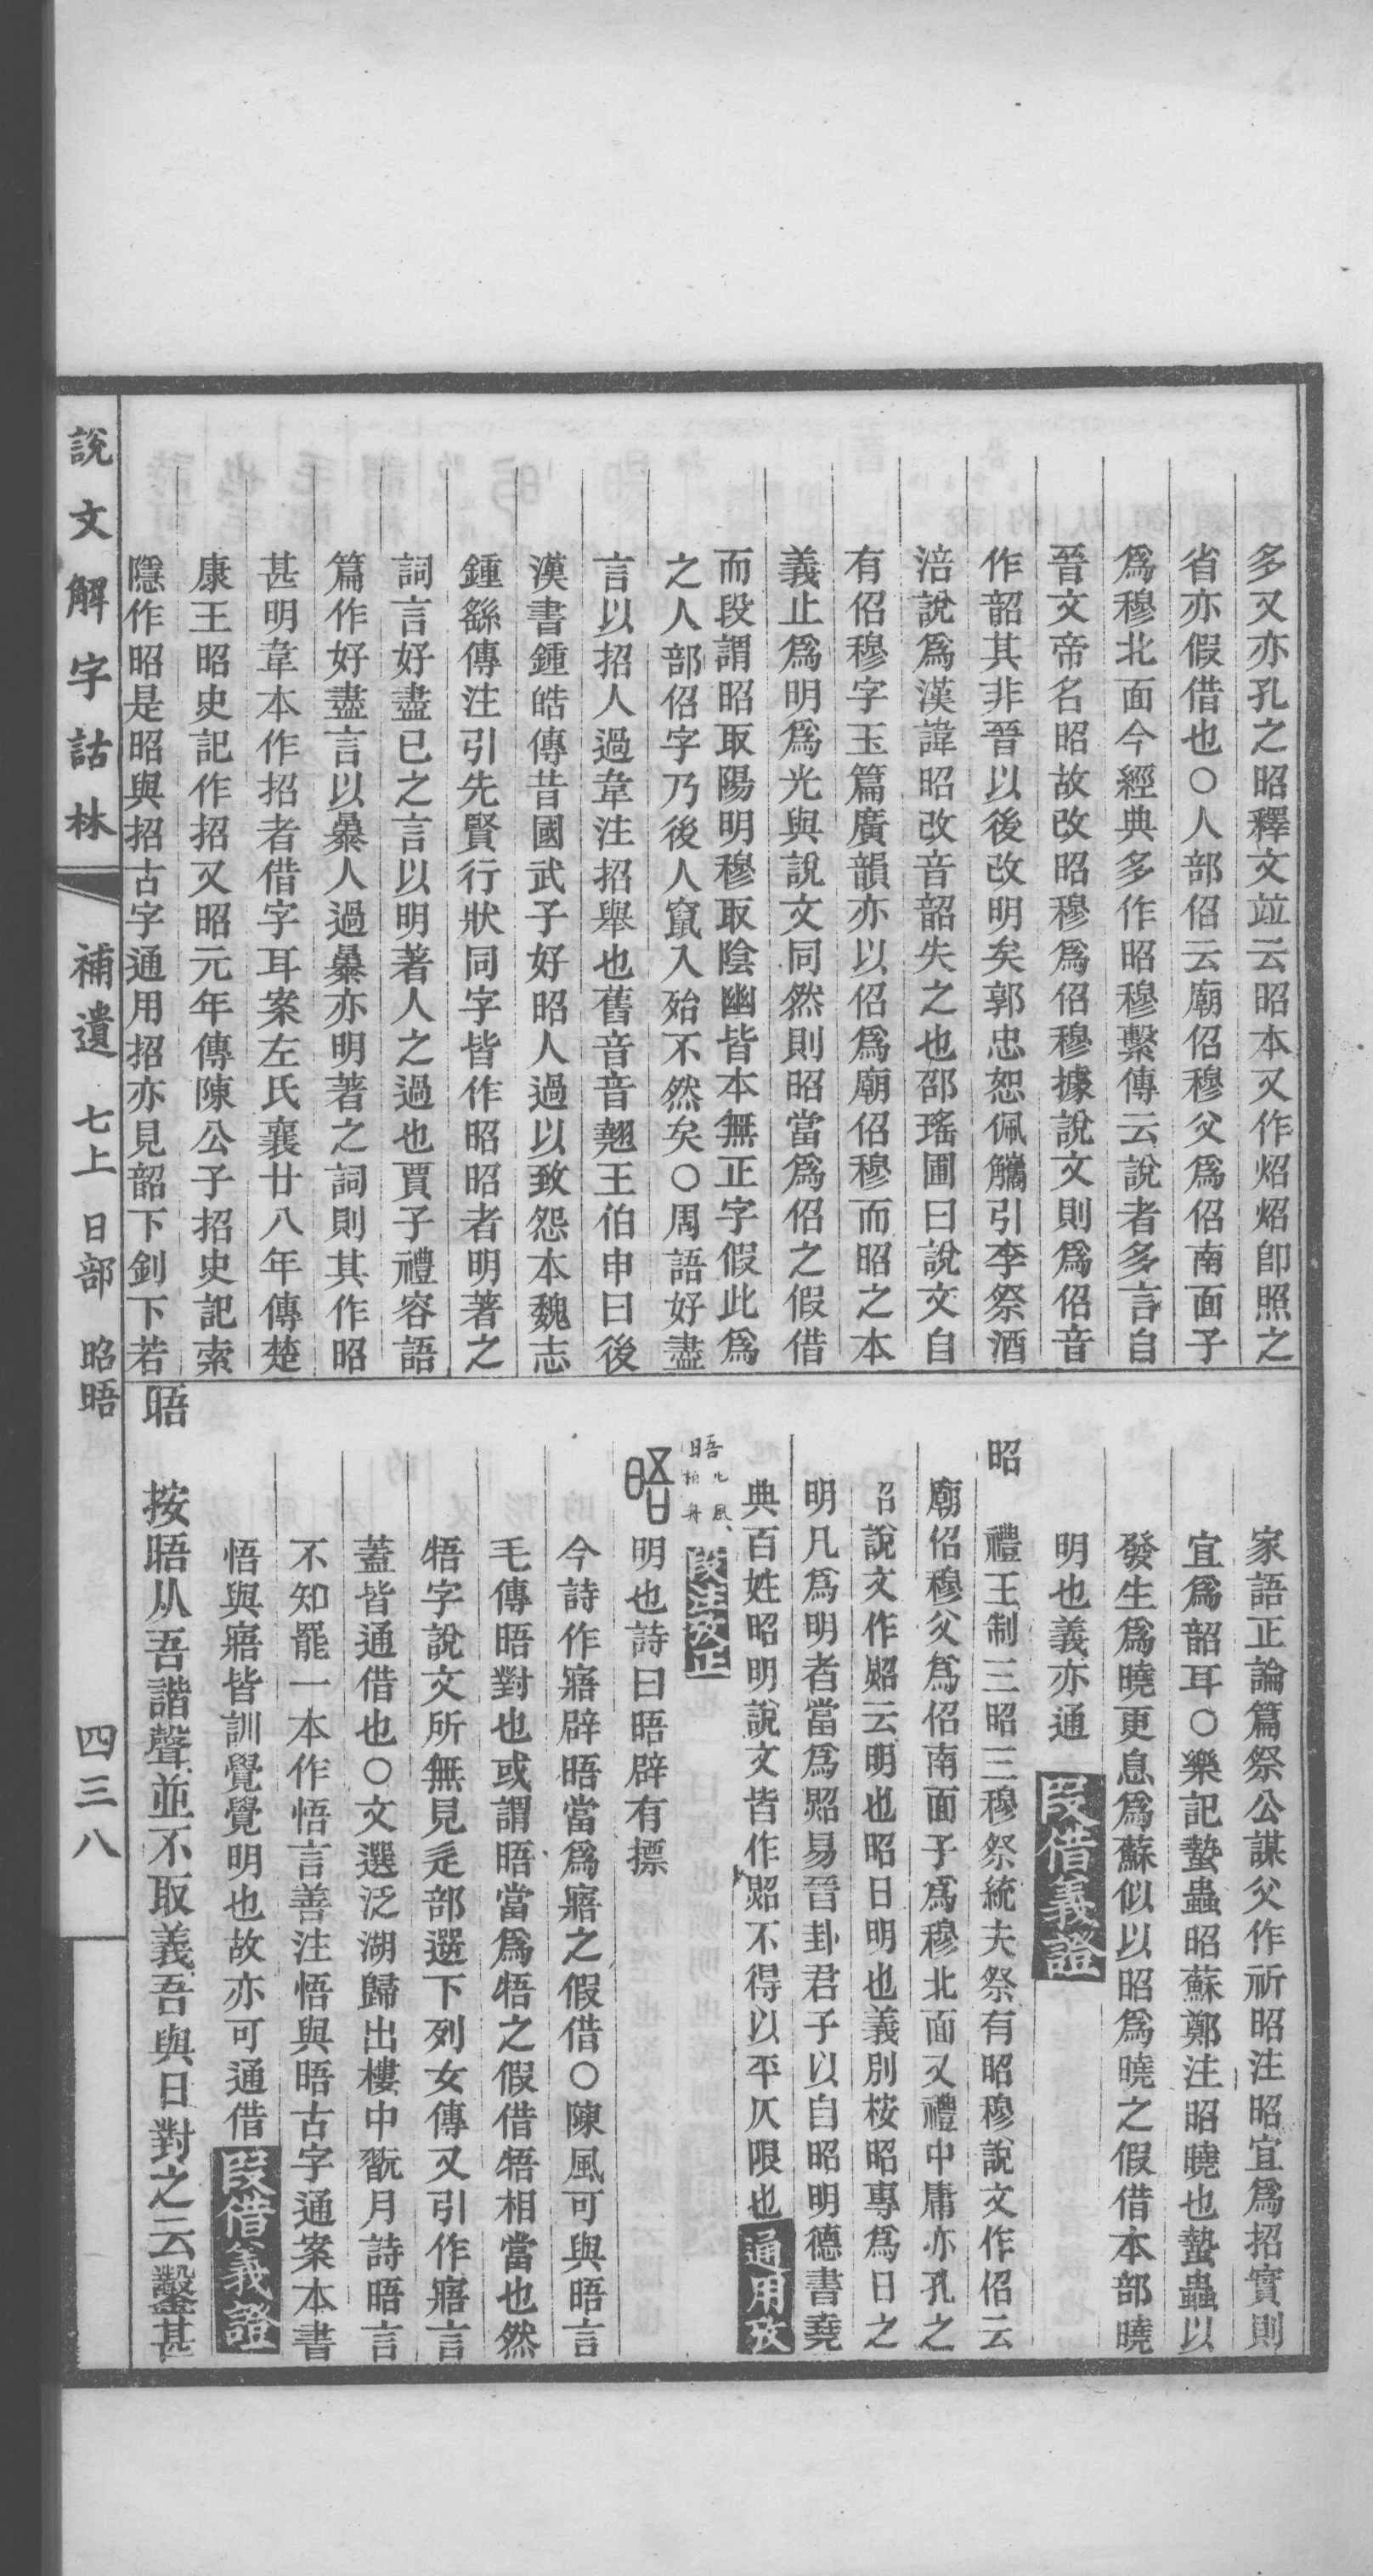 多又亦孔之昭釋文竝云昭本又作炤炤卽照之
省亦假借也○人部佋云廟佋穆父爲佋南面子
爲穆北面今經典多作昭穆繫傳云說者多言自
晉文帝名昭故改昭穆爲佋穆據說文則爲佋音
作韶其非晉以後改明矣郭忠恕佩觿引李祭酒
涪說爲漢諱昭改音韶失之也邵瑤圃曰說文自
有佋穆字玉篇廣韻亦以佋爲廟佋穆而昭之本
義止爲明爲光與說文同然則昭當爲佋之假借
而段謂昭取陽明穆取陰幽皆本無正字假此爲
之人部佋字乃後人竄入殆不然矣○周語好盡
言以招人過韋注招舉也舊音音翹王伯申曰後
漢書鍾皓傳昔國武子好昭人過以致怨本魏志
鍾繇傳注引先賢行狀同字皆作昭昭者明著之
詞言好盡已之言以明著人之過也賈子禮容語
篇作好盡言以㬥人過㬥亦明著之詞則其作昭
甚明韋本作招者借字耳案左氏襄廿八年傳楚
康王昭史記作招又昭元年傳陳公子招史記索
隱作昭是昭與招古字通用招亦見韶下釗下若
家語正論篇祭公謀父作祈昭注昭宜爲招實則
宜爲韶耳○樂記蟄蟲昭蘇鄭注昭曉也蟄蟲以
發生爲曉更息爲蘇似以昭爲曉之假借本部曉
明也義亦通 段借義證
昭 禮王制三昭三穆祭統夫祭有昭穆說文作佋云
廟佋穆父爲佋南面子爲穆北面又禮中庸亦孔之
炤說文作照云明也昭日明也義別桉昭專爲日之
明凡爲明者當爲照易晉卦君子以自昭明德書堯
典百姓昭明說文皆作照不得以平仄限也 通用攷
晤 邶風柏舟 段注攷正
晤 明也詩曰晤辟有摽
今詩作寤辟晤當爲寤之假借○陳風可與晤言
毛傳晤對也或謂晤當爲啎之假借啎相當也然
啎字說文所無見辵部遻下列女傳又引作寤言
蓋皆通借也○文選泛湖歸出樓中翫月詩晤言
不知罷一本作悟言善注悟與晤古字通案本書
悟與寤皆訓覺覺明也故亦可通借 段借義證
晤 按晤从吾諧聲並不取義吾與日對之云鑿甚
說文解字詁林 補遺 七上 日部 昭晤 四三八